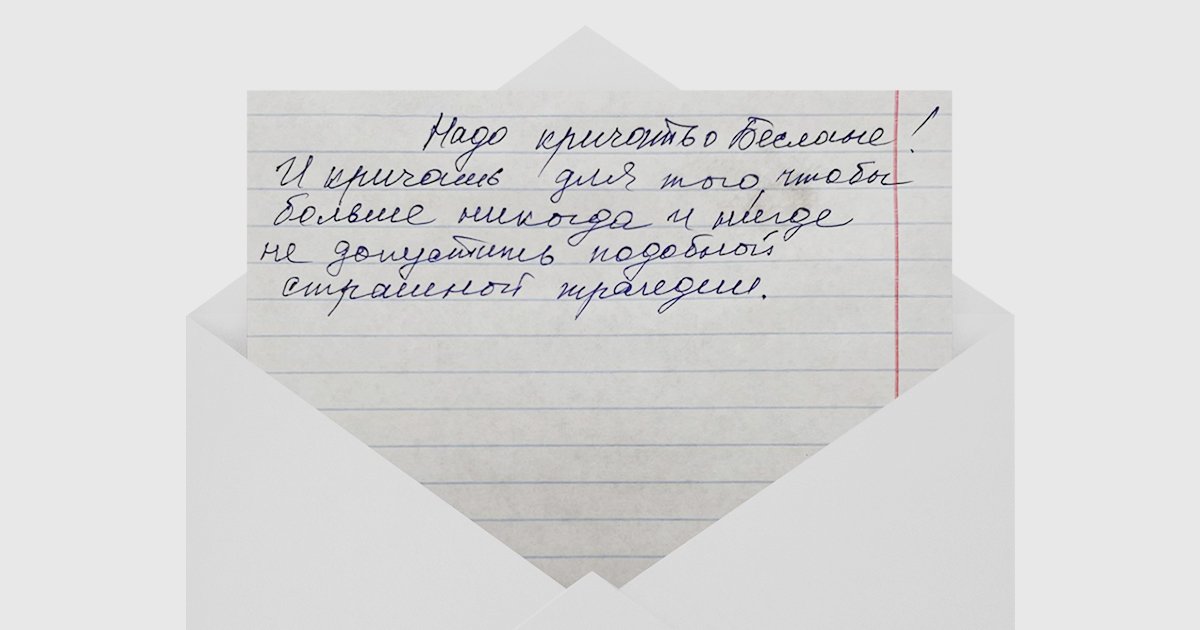 Надо кричать о Беслане!
И кричать для того, чтобы
больше никогда и нигде
не допустить подобной
страшной трагедии.